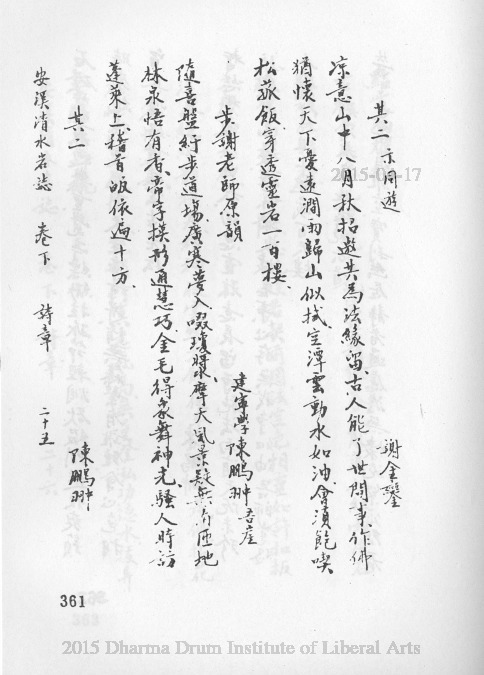 其二 示同遊
謝金鑾
凉意山中八月秋招邀共為法緣留古人能了世間事作佛
猶懷天下憂遠澗雨歸山似拭空潭雲動水如油會須飽喫
松蔬飯穿透靈岩一百樓
建寧學 陳鵬翀
步謝老師原韻
隨喜盤紆步道場廣寒夢入啜瓊漿摩天風景疑無 匝地
林泉悟有香帝字摸形通慧巧金毛得象舞神光騷人時訪
蓬萊上稽首皈依遍十方
其二
陳鵬翀
安溪清水岩誌 卷下 詩章 二十五
361
2015-04-17
2015 Dharma Drum Institute of Liberal Arts